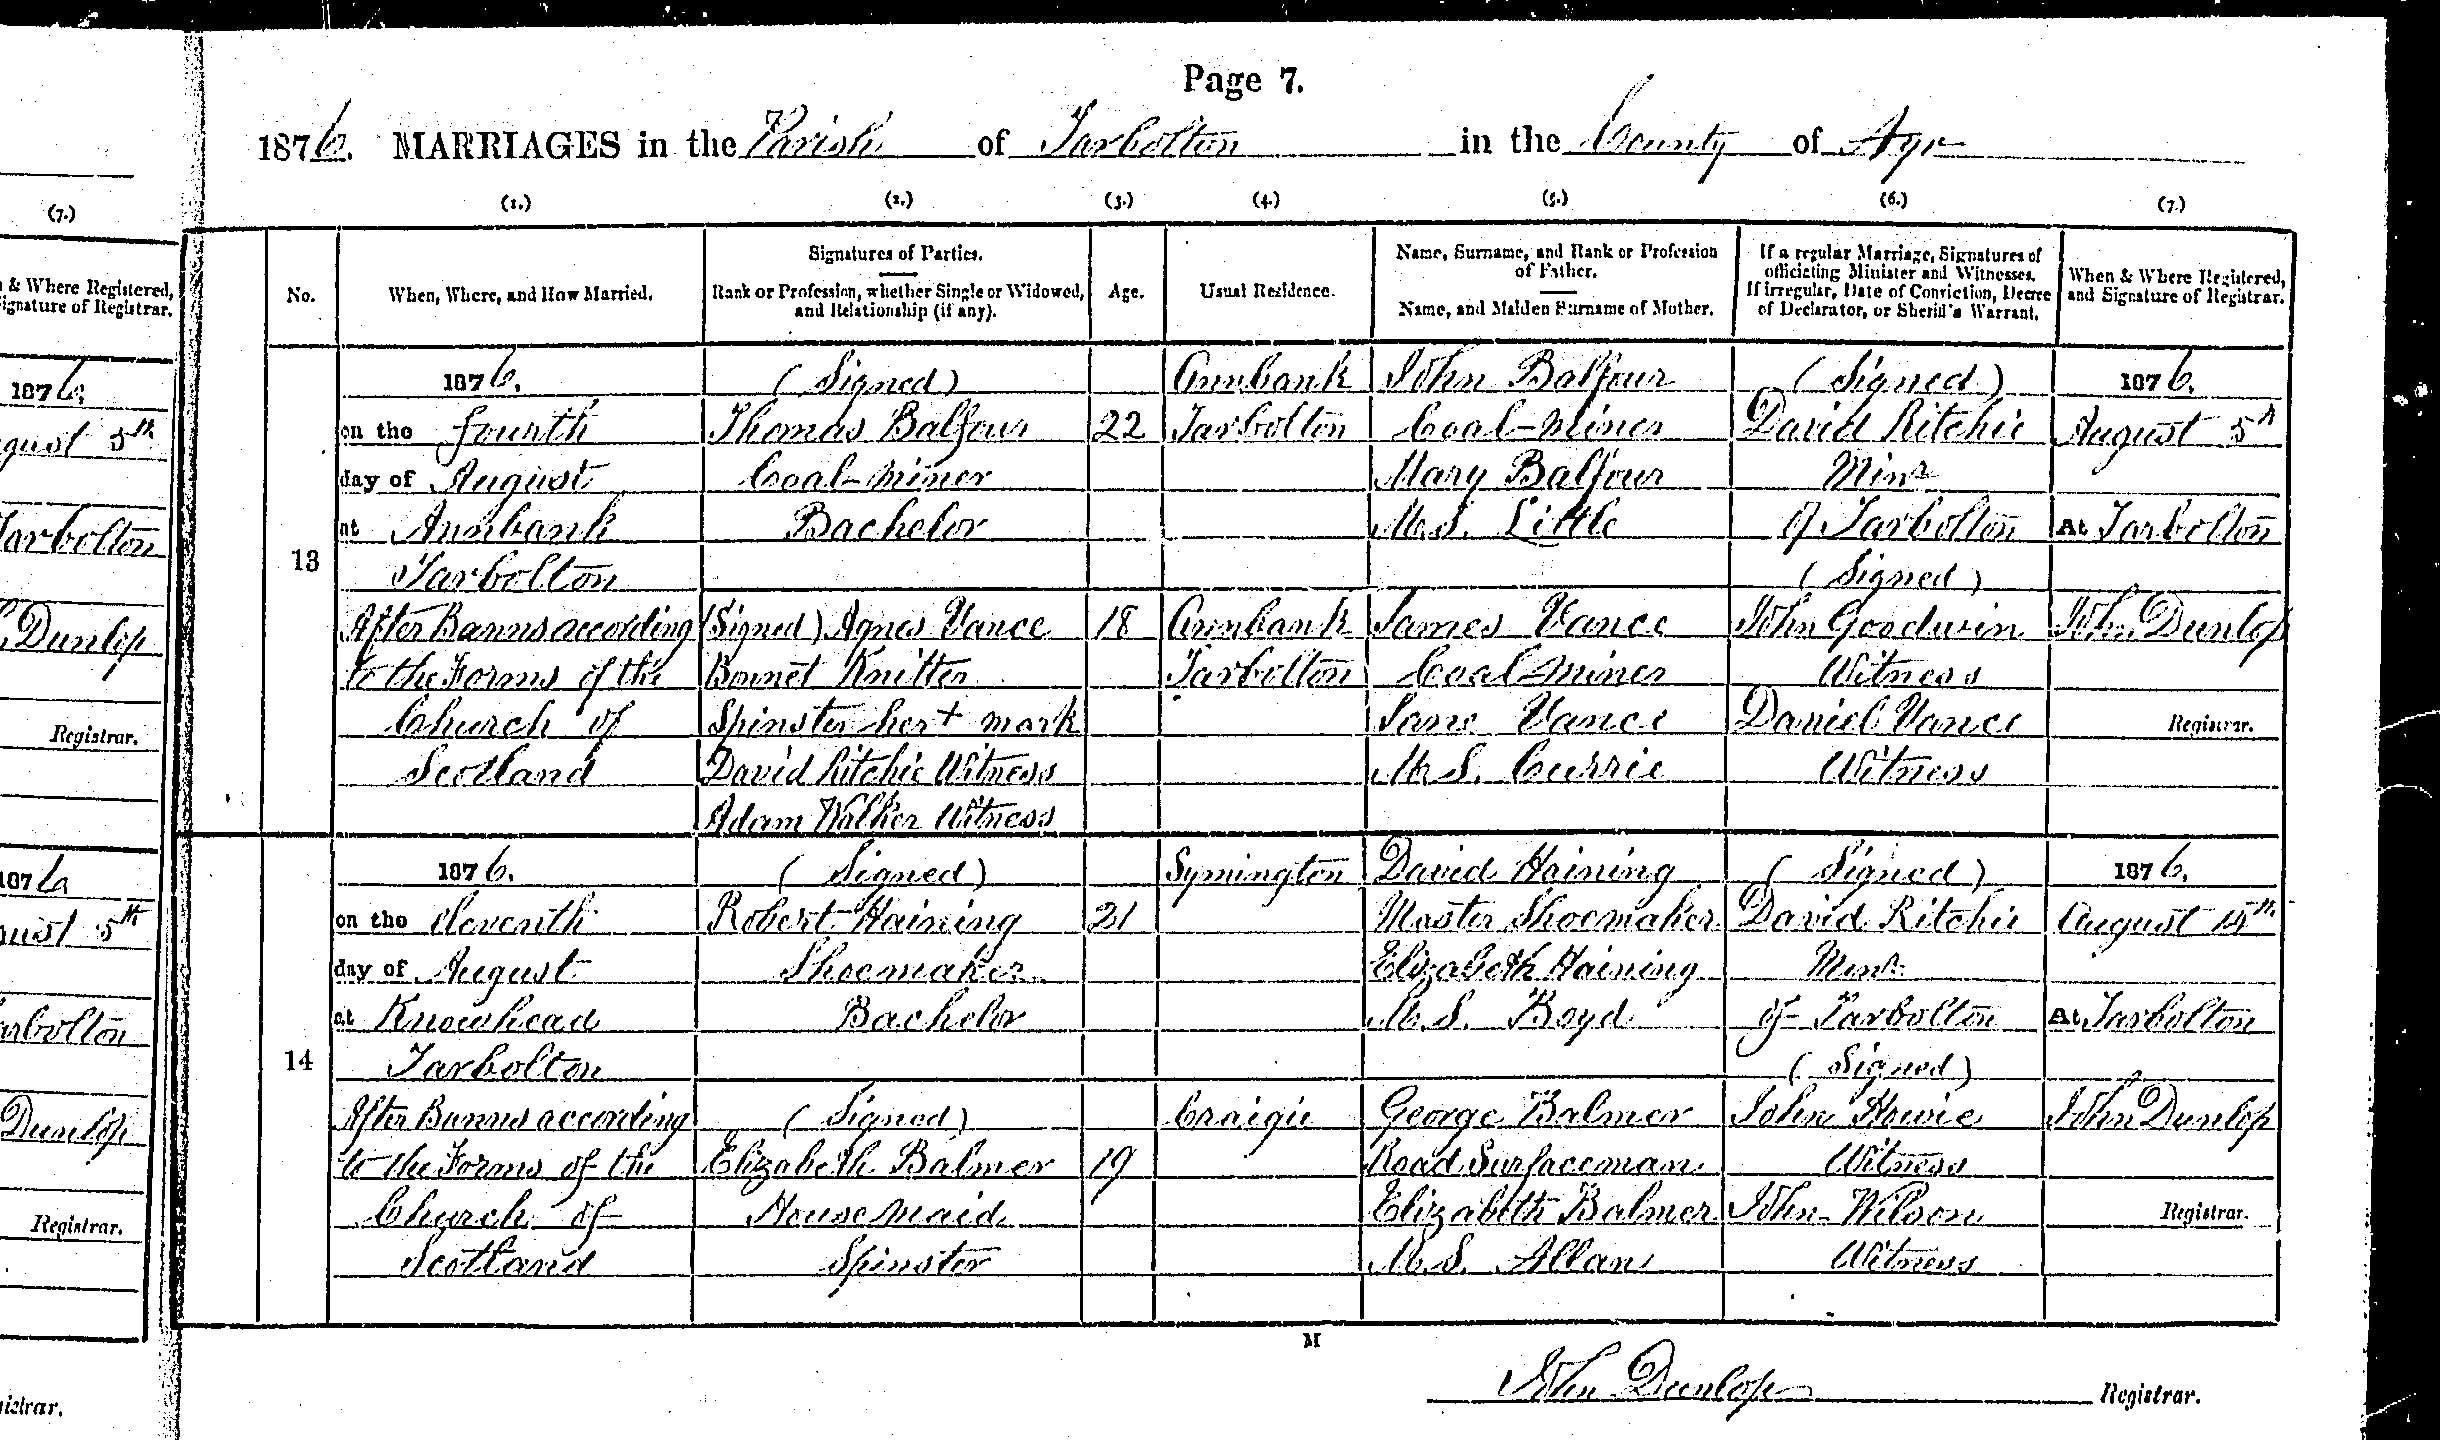 Page 7.
1876. MARRIAGES in the Parish of Tarbolton in the County of Ayr
(7.)
(1.) (2.) (3.) (4.) (5.) (6.) (7.)
& Where Registered,
ignature of Registrar.
1876.
gust 5th
Tarbolton
Dunlop
Registrar.
1876
ust 5th
arbolton
Dunlop
Registrar.
istrar.
No.
When, Where, and How Married.
Signatures of Parties.
Rank or Profession, whether Single or Widowed,
and Relationship (if any).
Age.
Usual Residence.
Name, Surname, and Rank or Profession
of Father.
Name, and Maiden Surname of Mother.
If a regular Marriage, Signatures of
officiating Minister and Witnesses.
If irregular, Date of Conviction, Decree
of Declarator, or Sheriff's Warrant.
When & Where Registered,
and Signature of Registrar.
13
1876.
on the fourth
day of August
at Annbank
Tarbolton
After Banns according
to the Forms of the
Church of
Scotland
(Signed)
Thomas Balfour
Coal-miner
Bachelor
(Signed) Agnes Vance
Bonnet Knitter
Spinster her + mark
David Ritchie Witness
Adam Walker Witness
22
18
Annbank
Tarbolton
Annbank
Tarbolton
John Balfour
Coal-miner
Mary Balfour
M.S. Little
James Vance
Coal-miner
Jane Vance
M.S. Currie
(Signed)
David Ritchie
Minr
of Tarbolton
(Signed)
John Goodwin
Witness
Daniel Vance
Witness
1876.
August 5th
At Tarbolton
John Dunlop
Registrar.
14
1876.
on the Eleventh
day of August
at Knowhead
Tarbolton
After Banns according
to the Forms of the
Church of
Scotland
(Signed)
Robert Haining
Shoemaker
Bachelor
(Signed)
Elizabeth Balmer
House maid
Spinster
21
19
Symington
Craigie
David Haining
Master Shoemaker
Elizabeth Haining
M.S. Boyd
George Balmer
Road Surfaceman
Elizabeth Balmer
M.S. Allan
(Signed)
David Ritchie
Minr
of Tarbolton
(Signed)
John Howie
Witness
John Wilson
Witness
1876.
August 15th
At Tarbolton
John Dunlop
Registrar.
M
John Dunlop Registrar.